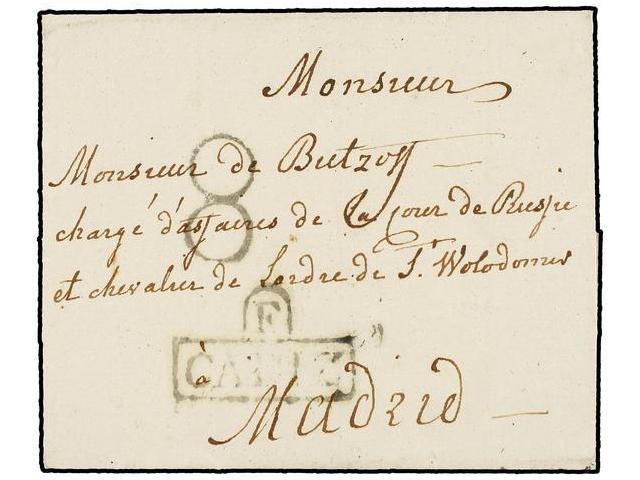 Monsieur
Monsieur de Butzoff
chargé d'affaires de La Cour de Russie
et chevalier de Lordre de St. Wolodomir
8
F
CADIZ
à Madrid